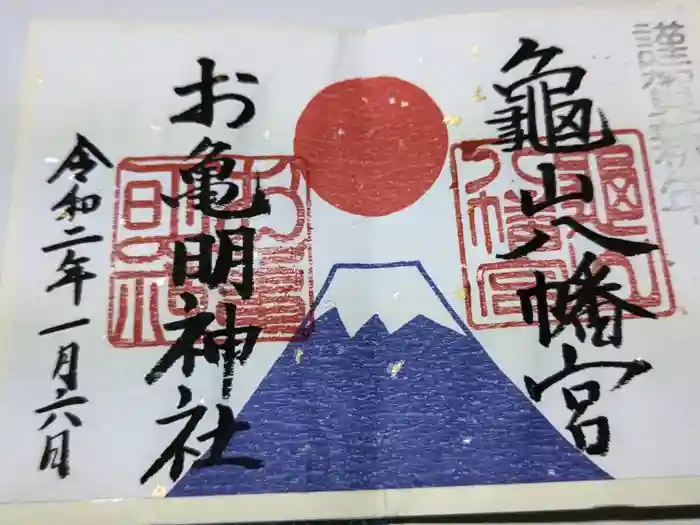 謹賀新年
龜山八幡宮
お亀明神社
令和二年一月六日